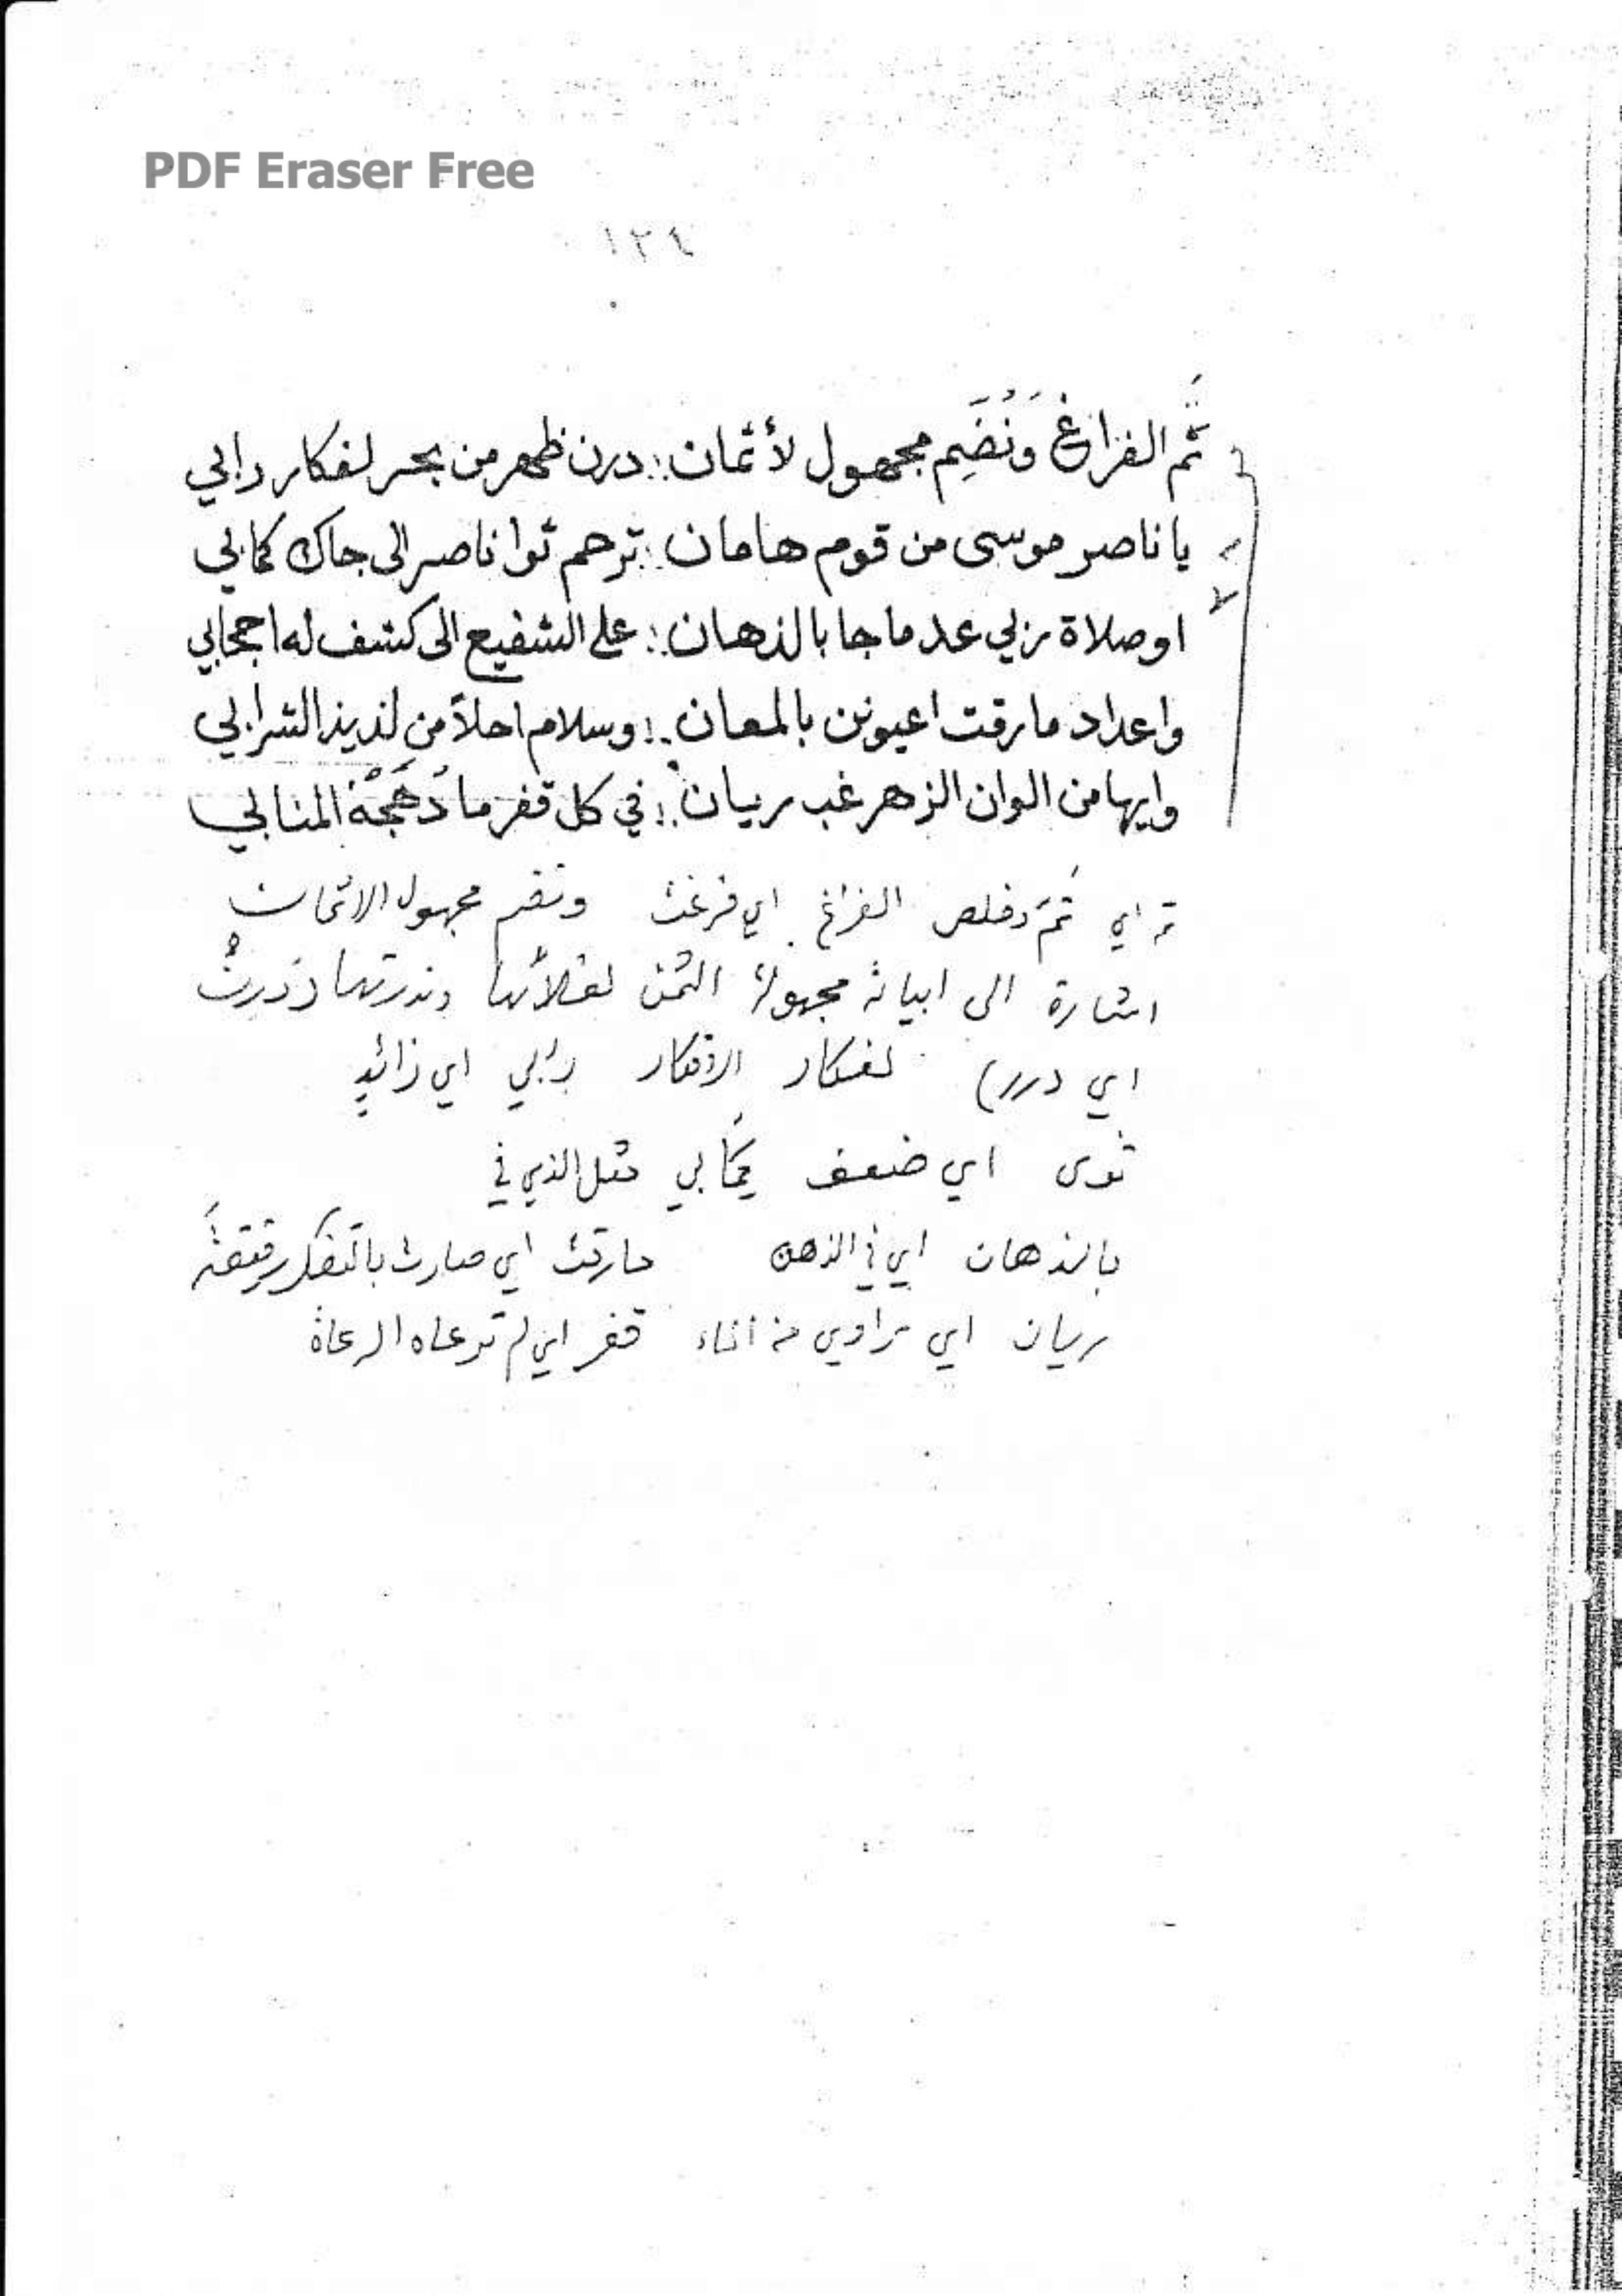 PDF Eraser Free
١٢٤
ثم الفراغ وَنُضَيم مجهول لأثمان :: درن ظهر من بحر لفكار رابي
يا ناصر موسى من قوم هامان :: ترحم ثوا ناصر الى جاك كمابي
او صلاة ربي عد ما جا بالذهان :: على الشفيع الى كشف له احجابي
واعداد ما رقت اعيونن بالمعان :: وسلام احلاً من لذيذ الشرابي
وابها من الوان الزهر غب ريان :: في كل قفر ما دُهَجَهْ المنابي
تم اي تَمَ وخلص الفراغ اي فرغت ونضم مجهول الاثمان
اشارة الى ابياته مجهولة الثمن لغلائها وندرتها دُررن
اي درر) لفكار الافكار رابي اي زائدٍ
ثوى اي ضعف كمابي مثل الذي في
بالذهان اي في الذهن مارقت اي صارت بالتفكر رقيقة
ريان اي مراوي من الماء قفر اي لم ترعاه الرعاة